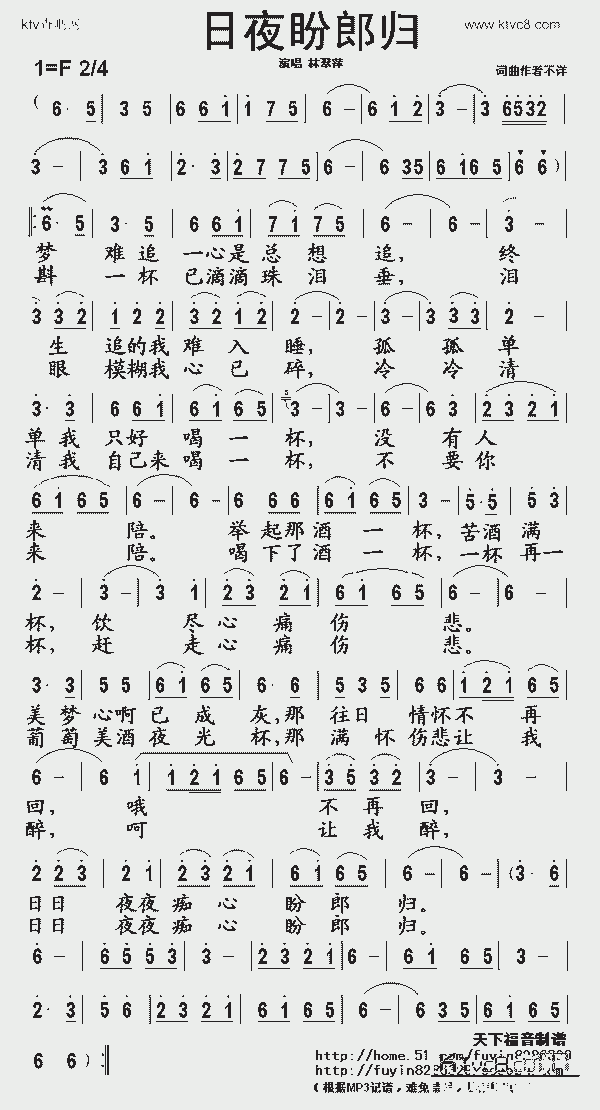 日夜盼郎归
www.ktvc8.com
1=F 2/4
演唱 林翠萍
词曲作者不详
(6· 5 | 3 5 | 6 6 1 | 1 7 5 | 6 - | 6 1 2 | 3 - | 3 6532 |
3 - | 3 6 1 | 2· 3 | 2 7 7 5 | 6 - | 6 35 | 6 165 | 6 6) |
‖: 6· 5 | 3· 5 | 6 6 1 | 7 1 7 5 | 6 - | 6 - | 3 - |
梦 难追 一心是总 想 追, 终
斟 一杯 已滴滴珠 泪 垂, 泪
3 3 2 | 1 2 2 | 3 2 1 2 | 2 - | 2 - | 3 - | 3 3 3 | 2 - |
生 追的我 难 入 睡, 孤 孤 单
眼 模糊我 心 已 碎, 冷 冷 清
3· 3 | 6 6 1 | 6 1 6 5 | 3 - | 3 - | 6 - | 6 3 | 2 3 2 1 |
单我 只好 喝 一 杯, 没 有人
清我 自己来喝 一 杯, 不 要你
6 1 6 5 | 6 - | 6 - | 6 6 6 | 6 1 6 5 | 3 - | 5·5 | 5 3 |
来 陪。 举起那酒 一 杯,苦酒 满
来 陪。 喝下了酒 一 杯,一杯 再一
2 - | 3 - | 3 1 | 2 3 2 1 | 6 1 6 5 | 6 - | 6 - |
杯, 饮 尽心 痛 伤 悲。
杯, 赶 走心 痛 伤 悲。
3· 3 | 5 5 | 6 1 6 5 | 6· 6 | 5 3 5 | 6 6 | 1 2 1 6 5 |
美梦心啊已 成 灰,那 往日 情怀不 再
葡萄美酒夜 光 杯,那 满 怀 伤悲让 我
6 - | 6 1 | 1 2 1 6 5 | 6 - | 3 5 3 2 | 3 - | 3 - |
回, 哦 不再回,
醉, 呵 让我醉,
2 2 3 | 2 1 | 2 3 2 1 | 6 1 6 5 | 6 - | 6 - | (3· 6 |
日日 夜夜痴 心 盼 郎 归。
日日 夜夜痴 心 盼 郎 归。
6 - | 6 5 5 3 | 3 - | 2 3 2 1 | 6 - | 6 1 6 5 | 3 - |
2· 3 | 5 6 | 2 3 2 1 | 6 1 2 1 | 6 - | 6 3 5 | 6 1 6 5 |
6 6) :‖
天下福音制谱